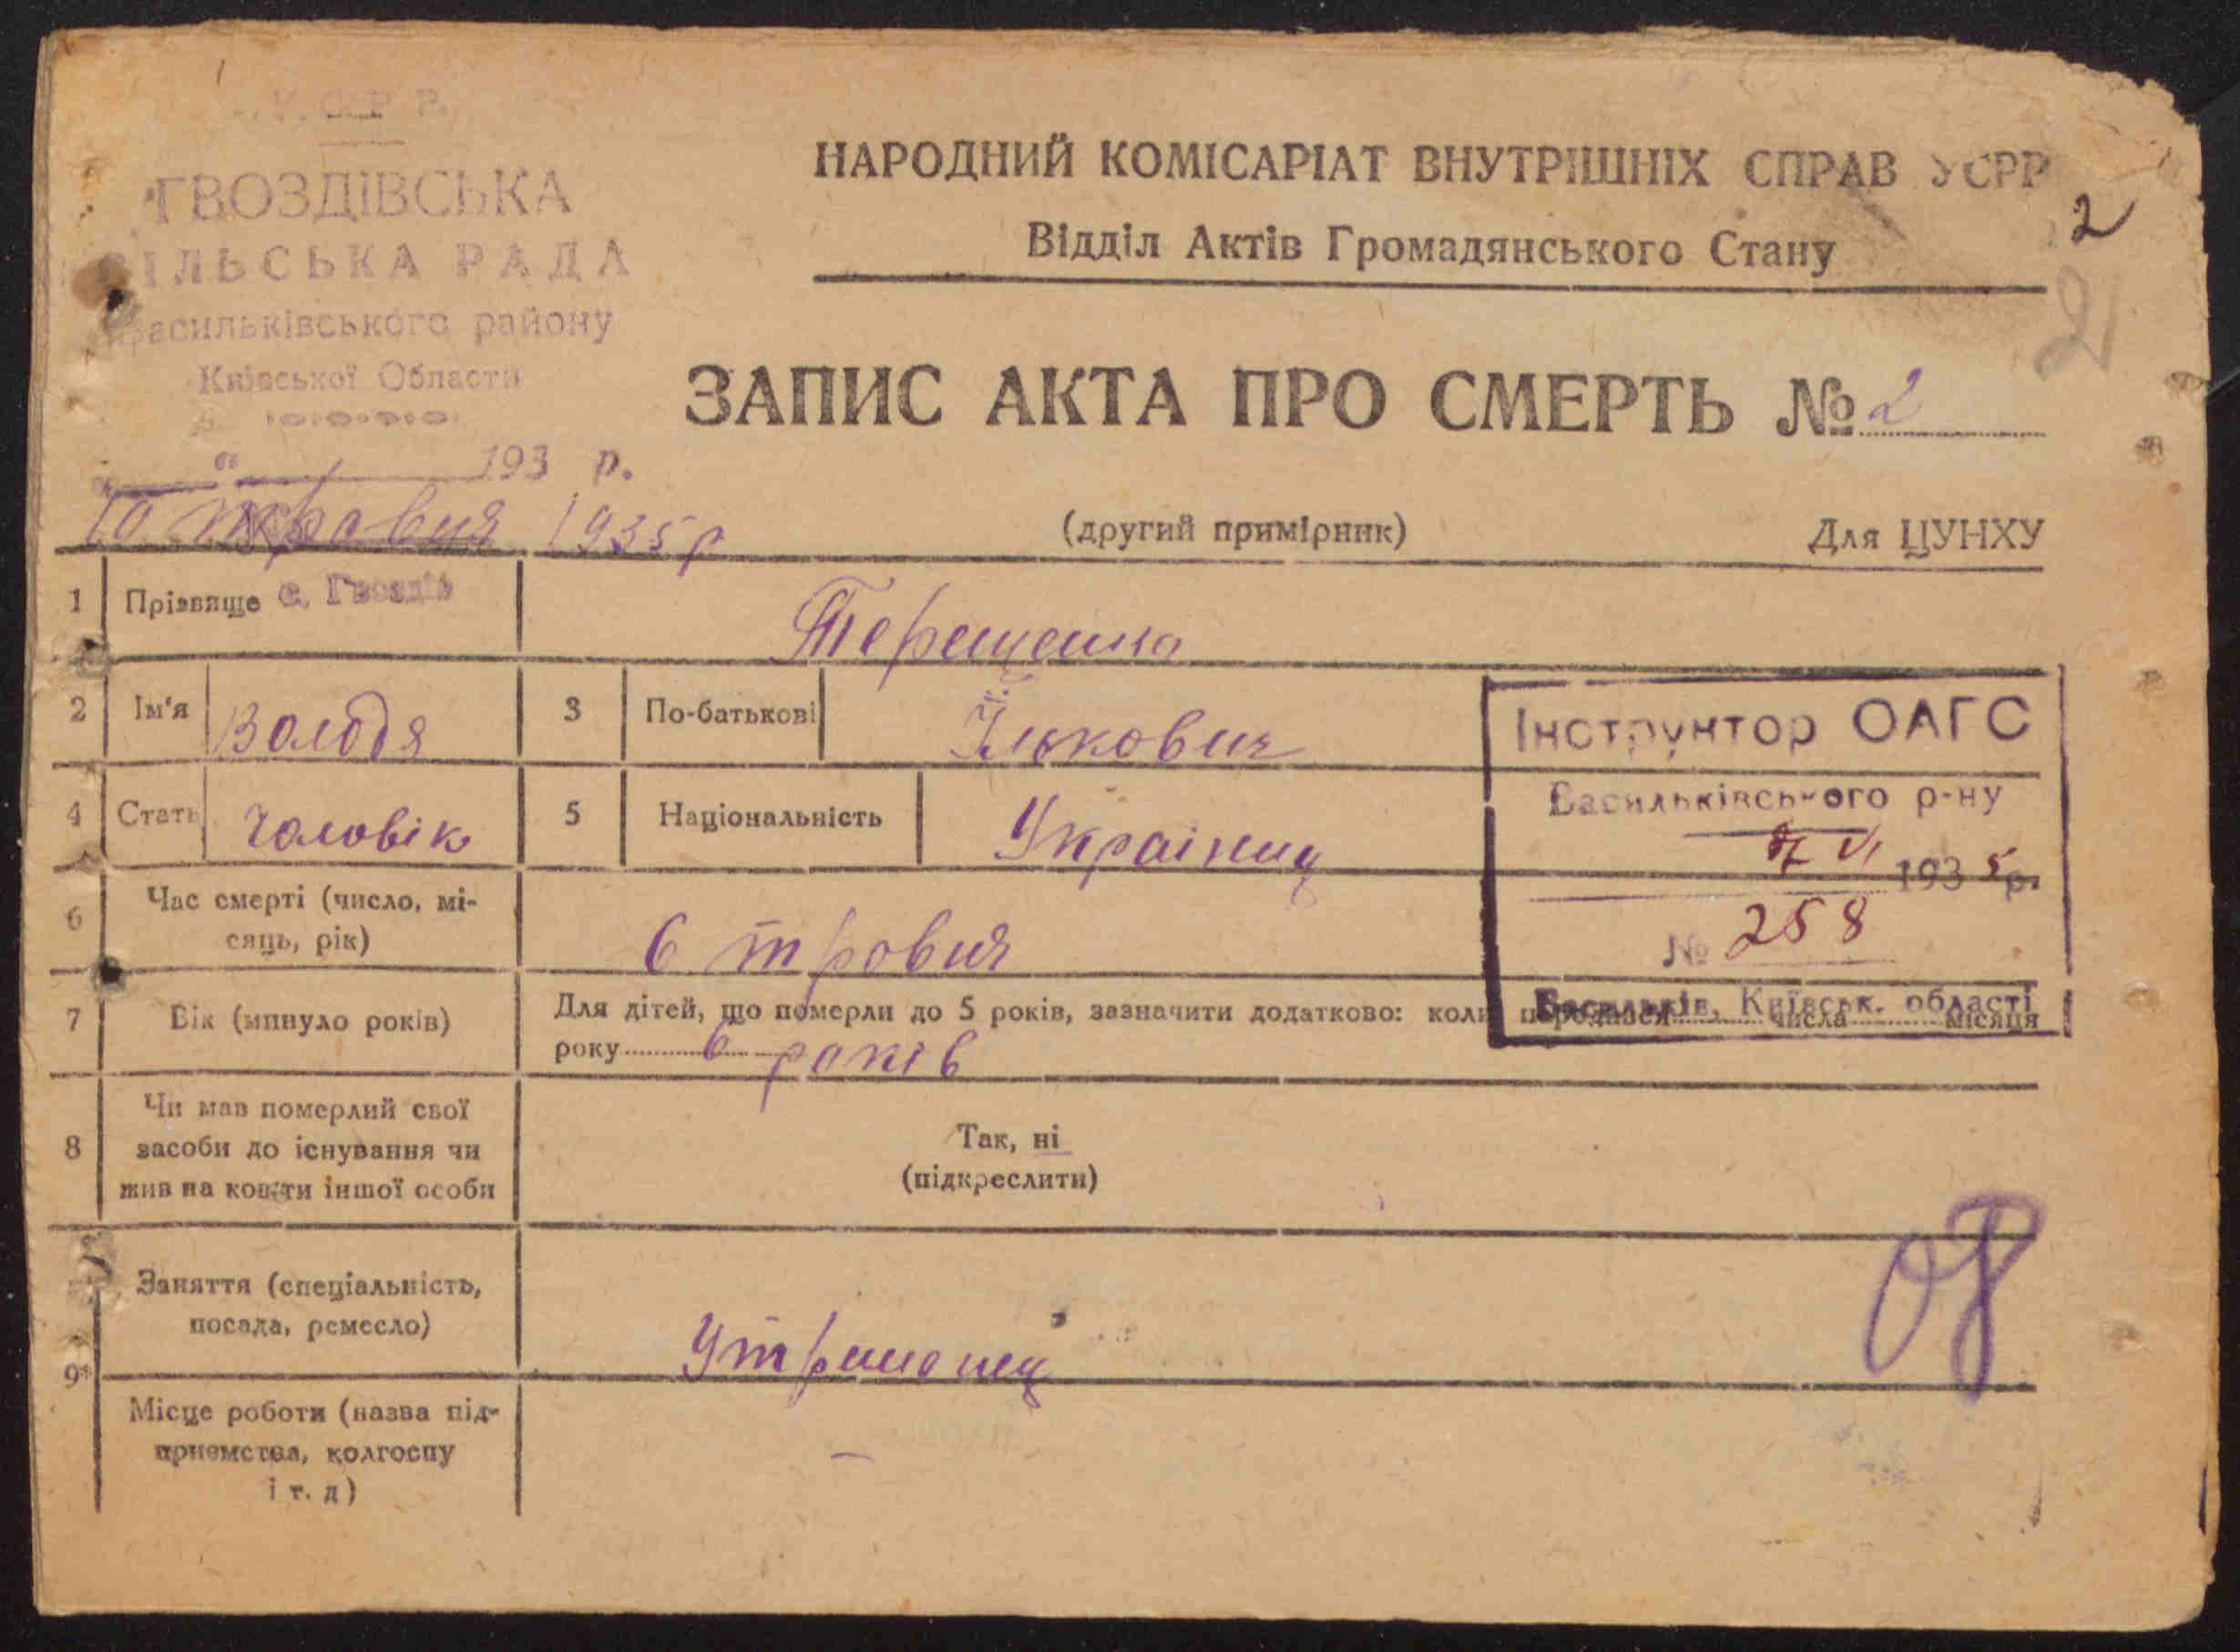 У. С. Р. Р.
ГВОЗДІВСЬКА
СІЛЬСЬКА РАДА
Васильківського району
Київської Области
„ " 193 р.
10 травня 1935 р
с. Гвоздів
НАРОДНИЙ КОМІСАРІАТ ВНУТРІШНІХ СПРАВ УСРР
Відділ Актів Громадянського Стану
2
2
ЗАПИС АКТА ПРО СМЕРТЬ № 2
(другий примірник)
Для ЦУНХУ
1 Прізвище Терещенко
2 Ім'я Володя 3 По-батькові Ількович
4 Стать Чоловік 5 Національність Українец
Інструктор ОАГС
Васильківського р-ну
7 VI 1935 р.
№ 258
Васильків, Київськ. області
6 Час смерті (число, мі-
сяць, рік) 6 тровня
7 Вік (минуло років) Для дітей, що померли до 5 років, зазначити додатково: коли народився числа місяця
року 6 років
8 Чи мав померлий свої
засоби до існування чи
жив на кошти іншої особи
Так, ні
(підкреслити)
9 Заняття (спеціальність,
посада, ремесло) Утриманец
08
Місце роботи (назва під-
приємства, колгоспу
і т. д) —